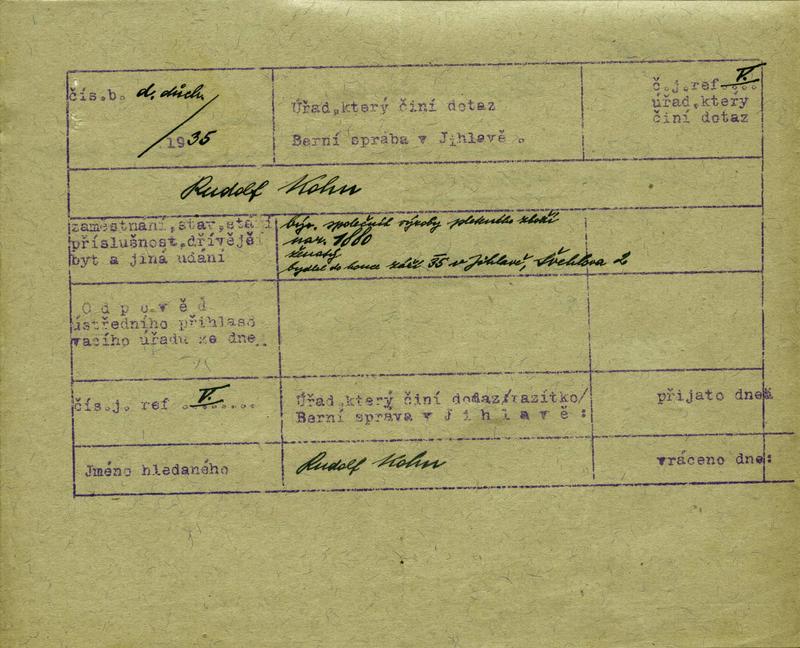 čís.b. d. důch.
/
1935
Úřad,který činí dotaz
Berní správa v Jihlavě.
č.j.ref V.
úřad,který
činí dotaz
Rudolf Kohn
zaměstnání,stav,stá
příslušnost,dřívějš
byt a jiná udání
býv. společník výroby pleteného zboží
nar. 1880
ženatý
bydlel do konce září 35 v Jihlavě, Švehlova 2
O d p o v ě d
ústředního přihlašo
vacího úřadu ze dne..
čís.j. ref V.
Úřad,který činí dotaz/razítko/
Berní správa v J i h l a v ě :
přijato dne:
Jméno hledaného
Rudolf Kohn
vráceno dne: